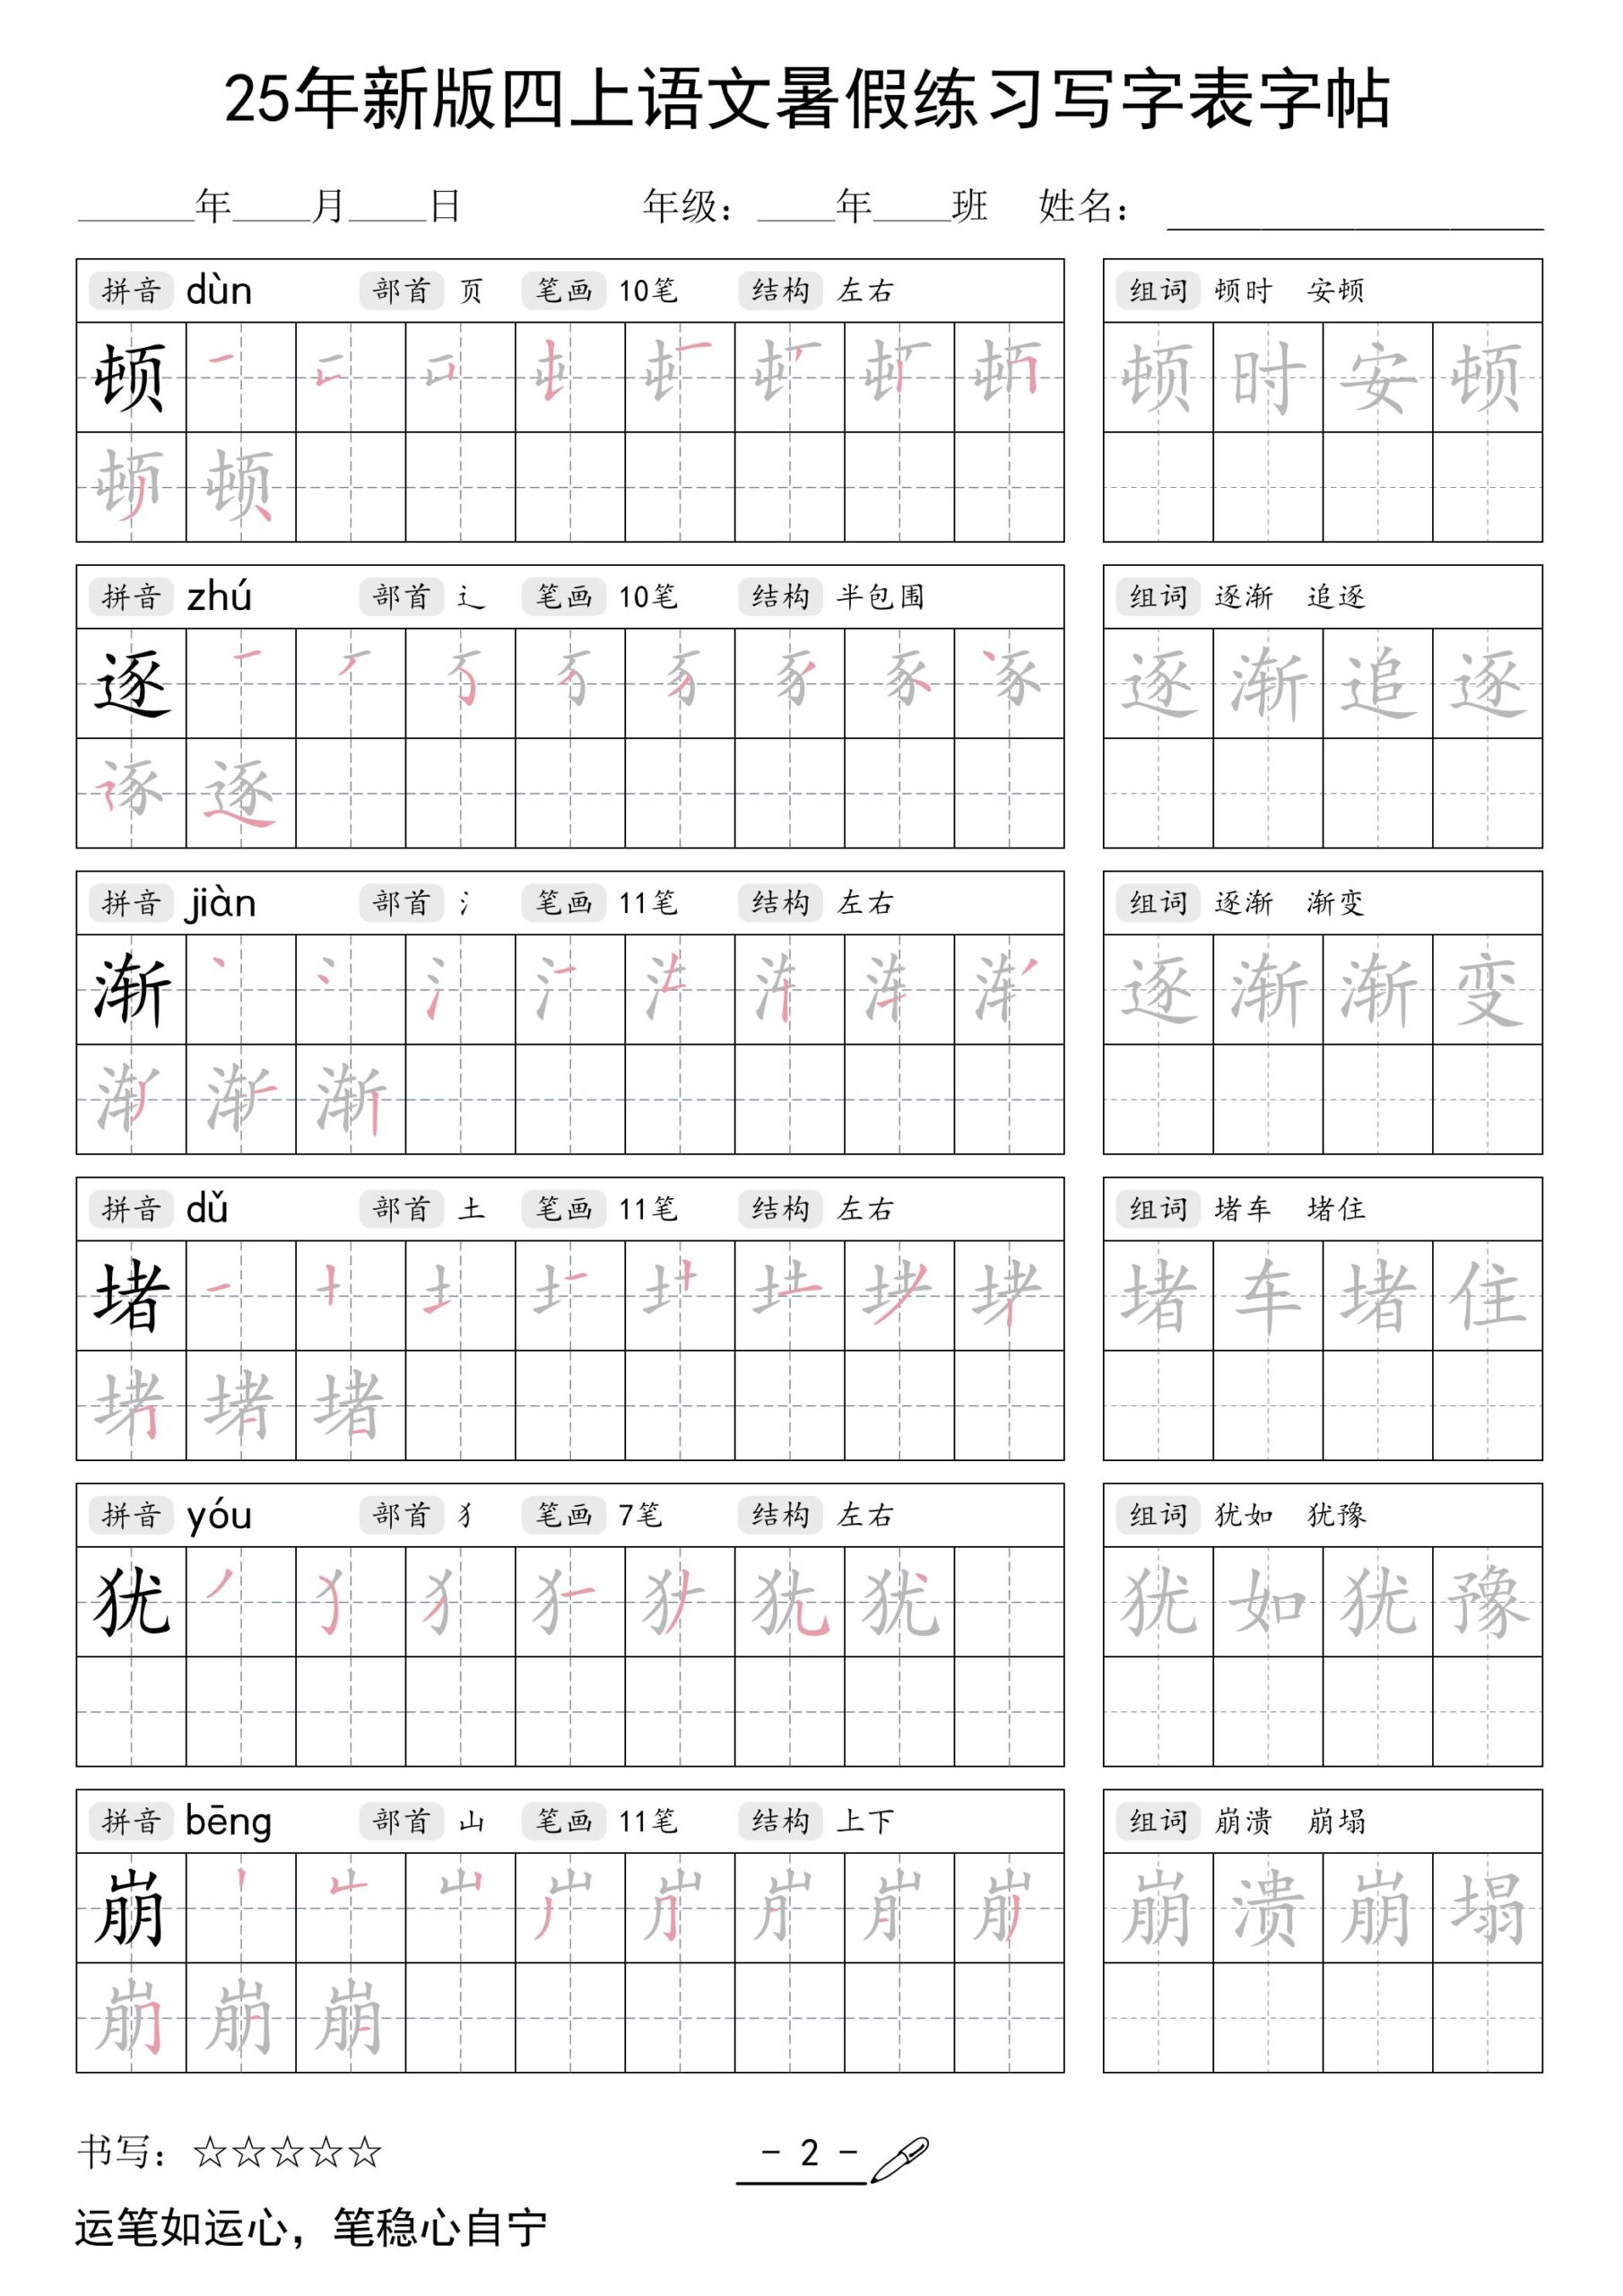 25年新版四上语文暑假练习写字表字帖
______年____月____日 年级：____年____班 姓名：____________
拼音 dùn 部首 页 笔画 10笔 结构 左右 组词 顿时 安顿
顿 顿时安顿
顿
拼音 zhú 部首 辶 笔画 10笔 结构 半包围 组词 逐渐 追逐
逐 逐渐追逐
逐
拼音 jiàn 部首 氵 笔画 11笔 结构 左右 组词 逐渐 渐变
渐 逐渐渐变
渐
拼音 dǔ 部首 土 笔画 11笔 结构 左右 组词 堵车 堵住
堵 堵车堵住
堵
拼音 yóu 部首 犭 笔画 7笔 结构 左右 组词 犹如 犹豫
犹 犹 犹如犹豫
拼音 bēng 部首 山 笔画 11笔 结构 上下 组词 崩溃 崩塌
崩 崩溃崩塌
崩
书写：☆☆☆☆☆
- 2 -
运笔如运心，笔稳心自宁